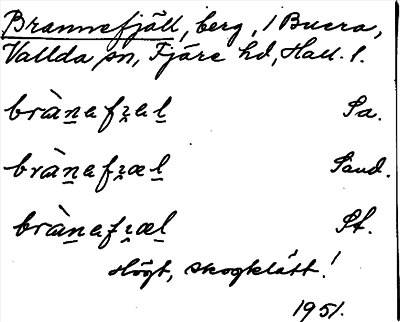 Brannefjäll, berg, i Buera,
Vallda sn, Fjäre hd, Hall. l.
brànafʐal Sa.
brànafʐæl Sand.
brànafʐæl St.
Högt, skogklätt!
1951.